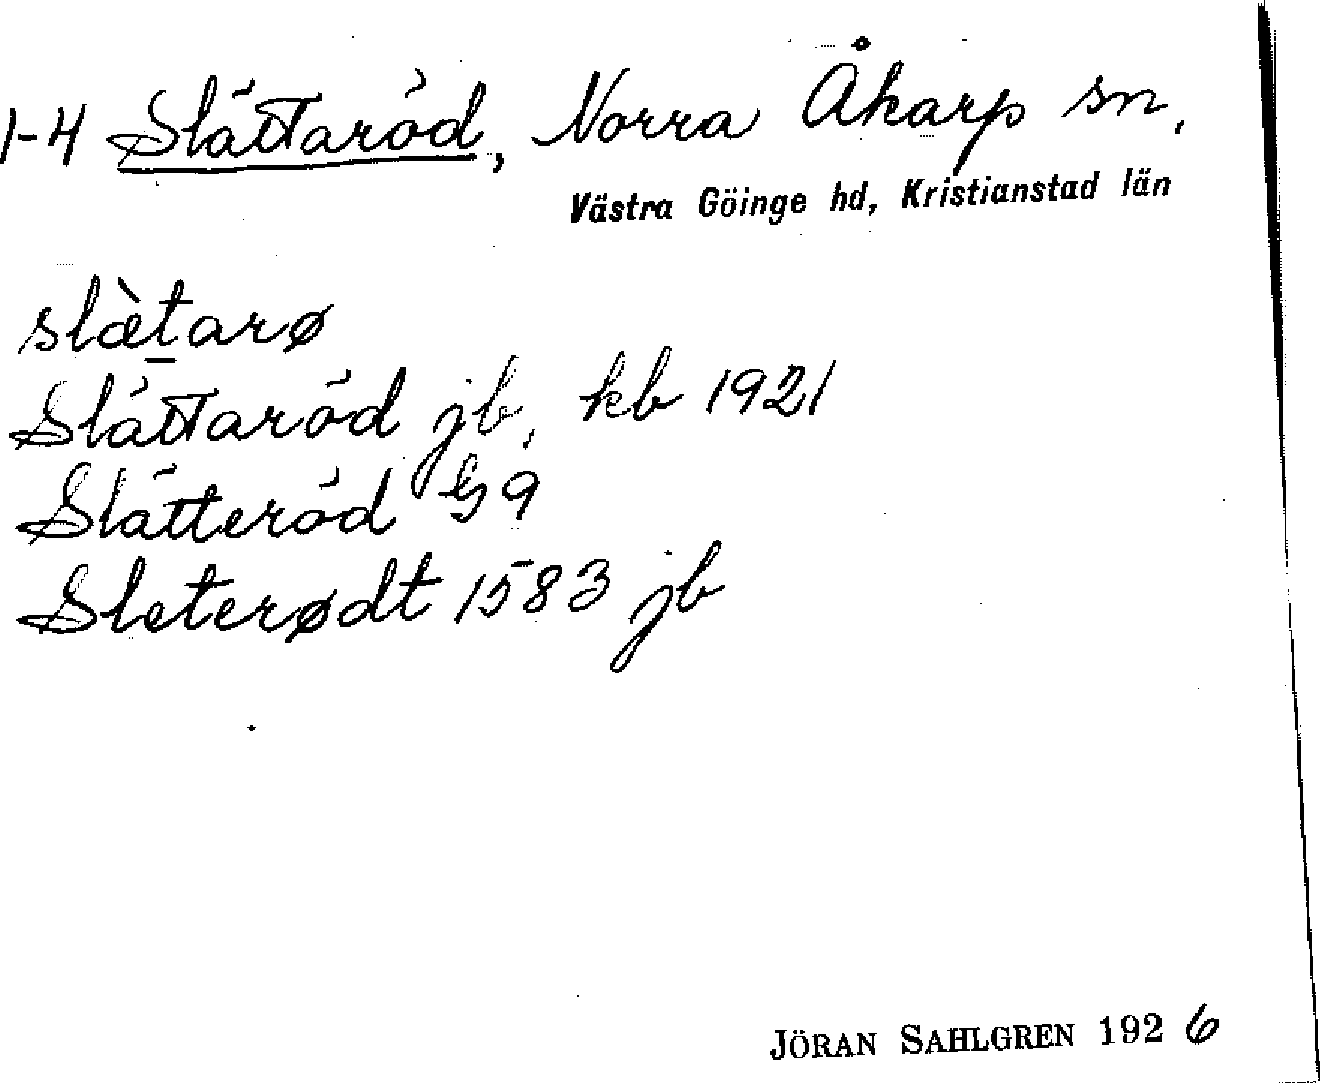 1-4 Slättaröd, Norra Åkarp sn,
Västra Göinge hd, Kristianstad län
slæ̀tarø
Slättaröd jb, kb 1921
Slätteröd G 9
Sleterødt 1583 jb
JÖRAN SAHLGREN 1926